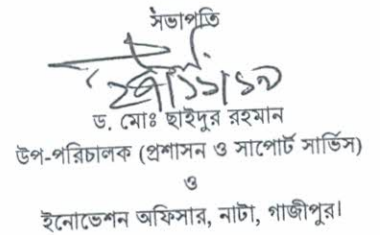 সভাপতি
ড. মোঃ ছাইদুর রহমান
উপ-পরিচালক (প্রশাসন ও সাপোর্ট সার্ভিস)
ও
ইনোভেশন অফিসার, নাটা, গাজীপুর।